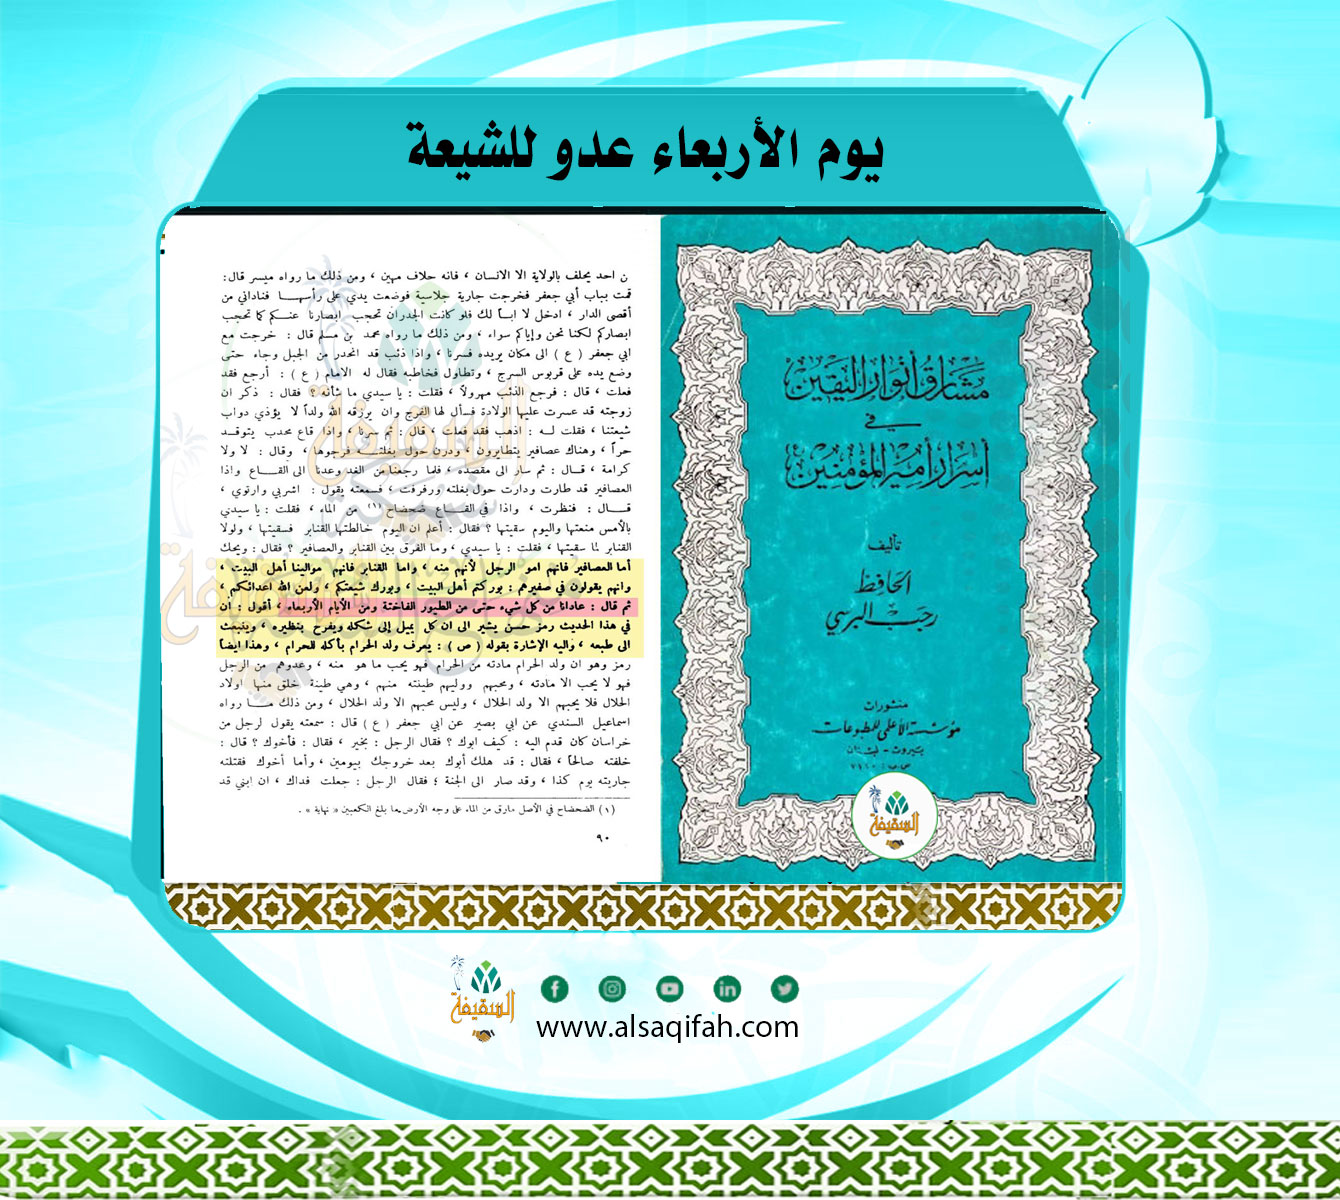 يوم الأربعاء عدو للشيعة
مشارق أنوار اليقين
في
أسرار أمير المؤمنين
تأليف
الحافظ
رجب البرسي
منشورات
مؤسسة الأعلمي للمطبوعات
بيروت - لبنان
ص.ب ٧١٢٠
السقيفة
ن احد يحلف بالولاية الا الانسان ، فانه حلاف مهين ، ومن ذلك ما رواه ميسر قال :
قمت بباب أبي جعفر فخرجت جارية جلاسية فوضعت يدي على رأسهـا فناداني من
أقصى الدار ، ادخل لا ابـاً لك فلو كانت الجدران تحجب ابصارنا عنـكم كما تحجب
ابصاركم لكنا نحن وإياكم سواء ، ومن ذلك ما رواه محمد بن مسلم قال : خرجت مع
ابي جعفر ( ع ) الى مكان يريده فسرنا ، واذا ذئب قد انحدر من الجبل وجاء حتى
وضع يده على قربوس السرج ، وتطاول فخاطبه فقال له الامام ( ع ) : أرجع فقد
فعلت ، قال : فرجع الذئب مهرولاً ، فقلت : يا سيدي ما شأنه ؟ فقال : ذكر ان
زوجته قد عسرت عليها الولادة فسأل لها الفرج وان يرزقه الله ولداً لا يؤذي دواب
شيعتنا ، فقلت لـه : اذهب فقد فعلت ، قال : ثم سرنا ، واذا قاع مجدب يتوقـد
حراً ، وهناك عصافير يتطايرون ، ودرن حول بغلتـه فزجرها ، وقال : لا ولا
كرامة ، قـال : ثم سار الى مقصده ، فلما رجعنا من الغد وعدنا الى القـاع واذا
العصافير قد طارت ودارت حول بغلته ورفرفت ، فسمعته يقول : اشربي وارتوي ،
قـال : فنظرت ، واذا في القـاع ضحضاح (١) من الماء ، فقلت : يا سيدي
بالأمس منعتها واليوم سقيتها ؟ فقال : أعلم ان اليوم خالطتها القنابر فسقيتها ، ولولا
القنابر لما سقيتها ، فقلت : يا سيدي ، وما الفرق بين القنابر والعصافير ؟ فقال : ويحك
أما العصافير فانهم امو الرجل لأنهم منه ، واما القنابر فانهم موالينا أهل البيت ،
وانهم يقولون في صفيرهم : بوركتم أهل البيت ، وبورك شيعتكم ، ولعن الله اعدائكم ،
ثم قال : عادانا من كل شيء حتى من الطيور الفاختة ومن الأيام الأربعاء ، أقول : ان
في هذا الحديث رمز حسن يشير الى ان كل يميل إلى شكله ويفرح بنظيره ، وينبعث
الى طبعه ، واليه الإشارة بقوله ( ص ) : يعرف ولد الحرام بأكله للحرام ، وهذا ايضاً
رمز وهو ان ولد الحرام مادته من الحرام فهو يحب ما هو منه ، وعدوهم من الرجل
فهو لا يحب الا مادته ، ومحبهم ووليهم طينته منهم ، وهي طينة خلق منها اولاد
الحلال فلا يحبهم الا ولد الحلال ، وليس محبهم الا ولد الحلال ، ومن ذلك مـا رواه
اسماعيل السندي عن ابي بصير عن ابي جعفر ( ع ) قال : سمعته يقول لرجل من
خراسان كان قدم اليه : كيف ابوك ؟ فقال الرجل : بخير ، فقال : فأخوك ؟ قال :
خلفته صالحاً ، فقال : قد هلك أبوك بعد خروجك بيومين ، وأما أخوك فقتلته
جاريته يوم كذا ، وقد صار الى الجنة ؛ فقال الرجل : جعلت فداك ، ان ابني قد
(١) الضحضاح في الأصل مارق من الماء على وجه الأرض ما يبلغ الكعبين « نهاية » .
٩٠
السقيفة
www.alsaqifah.com